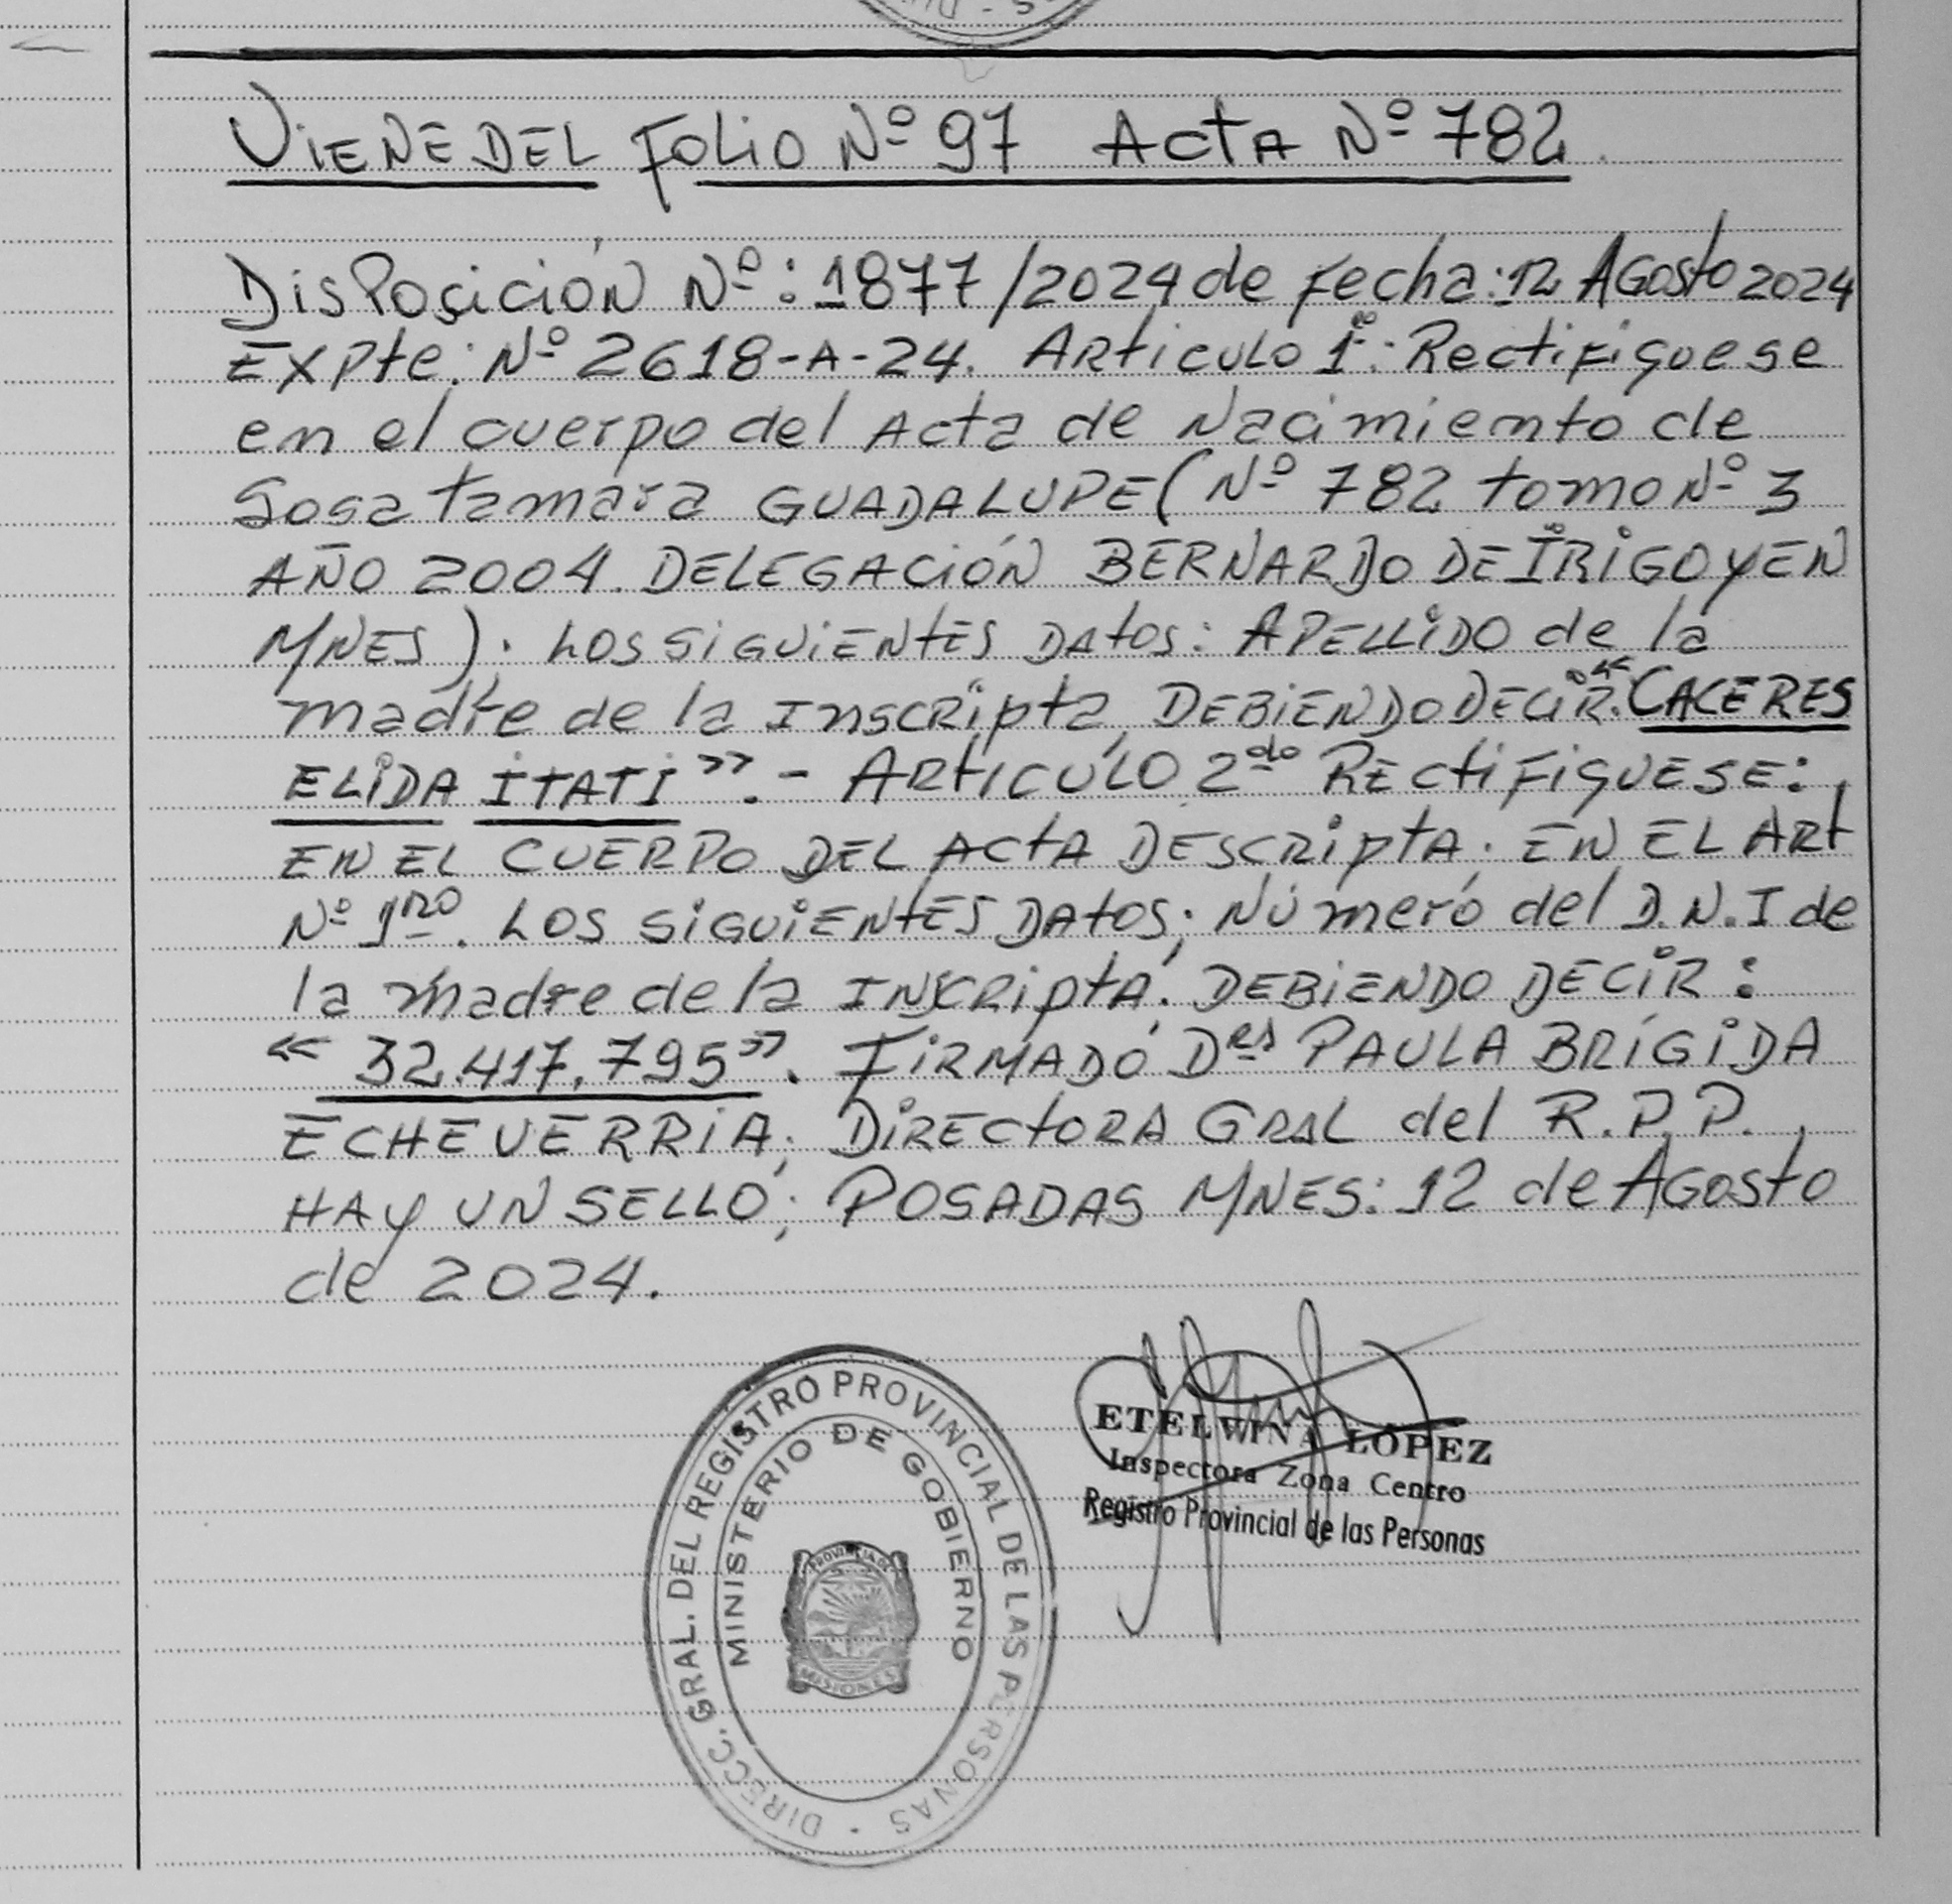 VIENE DEL FOLIO Nº 97 ACTA Nº 782
Disposición Nº: 1877/2024 de Fecha: 12 Agosto 2024
Expte: Nº 2618-A-24. Articulo 1º: Rectifiquese
en el cuerpo del Acta de Nacimiento de
Sosa tamara GUADALUPE (Nº 782 tomo Nº 3
AÑO 2004. DELEGACIÓN BERNARDO DE IRIGOYEN
MNES). LOS SIGUIENTES DATOS: APELLIDO de la
madre de la Inscripta, DEBIENDO DECIR: "CACERES
ELIDA ITATI". - ARTICULO 2do RECTIFIQUESE:
EN EL CUERPO DEL ACTA DESCRIPTA. EN EL ART
Nº 1ro. LOS SIGUIENTES DATOS; Número del D.N.I de
la madre de la INSCRIPTA. DEBIENDO DECIR:
"32.417.795". FIRMADO Dra PAULA BRIGIDA
ECHEVERRIA; DIRECTORA GRAL del R.P.P.
HAY UN SELLO; POSADAS MNES: 12 de Agosto
de 2024.
DIRECC. GRAL. DEL REGISTRO PROVINCIAL DE LAS PERSONAS
MINISTERIO DE GOBIERNO
PROVINCIA DE
MISIONES
ETELWINA LÓPEZ
Inspectora Zona Centro
Registro Provincial de las Personas